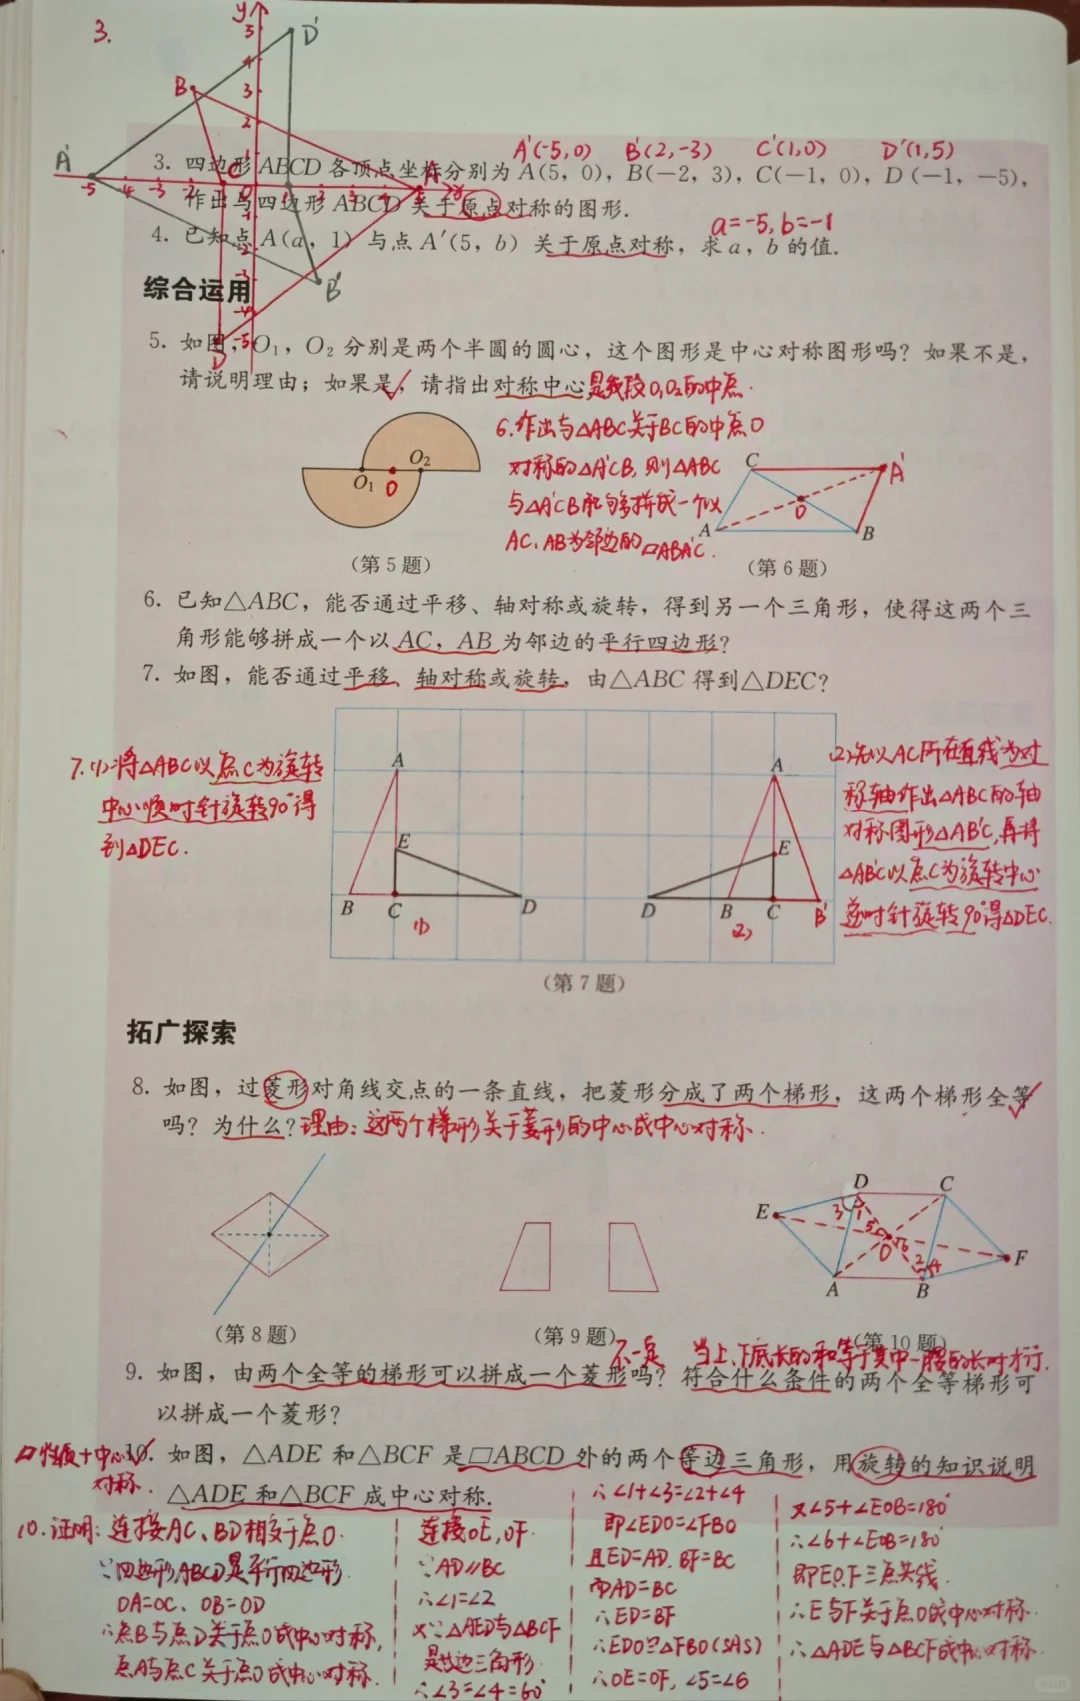 3.
y
5
D′
4
B
3
2
1
A′(-5,0) B′(2,-3) C′(1,0) D′(1,5)
A′
C
A
-5 -4 -3 -2 0 1 2 3 4 5 x
3. 四边形ABCD各顶点坐标分别为A(5，0)，B(−2，3)，C(−1，0)，D(−1，−5)，
作出与四边形ABCD关于原点对称的图形.
a=-5,b=-1
4. 已知点A(a，1)与点A′(5，b)关于原点对称，求a，b的值.
-2
-3
B′
-4
-5
D
综合运用
5. 如图，O₁，O₂分别是两个半圆的圆心，这个图形是中心对称图形吗？如果不是，
请说明理由；如果是，请指出对称中心是线段O₁O₂的中点.
6.作出与△ABC关于BC的中点O
对称的△A′CB,则△ABC
与△A′CB能够拼成一个以
AC、AB为邻边的▱ABA′C.
O₂
O₁ O
C A′
O
A B
(第5题)
(第6题)
6. 已知△ABC，能否通过平移、轴对称或旋转，得到另一个三角形，使得这两个三
角形能够拼成一个以AC，AB为邻边的平行四边形？
7. 如图，能否通过平移、轴对称或旋转，由△ABC得到△DEC？
7.(1)将△ABC以点C为旋转
中心顺时针旋转90°得
到△DEC.
A
E
B C D
(1)
A
E
D B C B′
(2)
(2)先以AC所在直线为对
称轴作出△ABC的轴
对称图形△AB′C,再将
△AB′C以点C为旋转中心
逆时针旋转90°得△DEC.
(第7题)
拓广探索
8. 如图，过菱形对角线交点的一条直线，把菱形分成了两个梯形，这两个梯形全等
吗？为什么？理由：这两个梯形关于菱形的中心成中心对称.
D C
E
3 1
5
O 6
F
2 4
A B
(第8题)
(第9题)
(第10题)
不一定 当上、下底长的和等于其中一腰的长时才行.
9. 如图，由两个全等的梯形可以拼成一个菱形吗？符合什么条件的两个全等梯形可
以拼成一个菱形？
▱性质+中心
对称.
10. 如图，△ADE和△BCF是▱ABCD外的两个等边三角形，用旋转的知识说明
△ADE和△BCF成中心对称.
10.证明：连接AC、BD相交于点O.
∵四边形ABCD是平行四边形.
OA=OC、OB=OD
∴点B与点D关于点O成中心对称,
点A与点C关于点O成中心对称.
连接OE,OF.
∵AD∥BC
∴∠1=∠2
又∵△AED与△BCF
是等边三角形.
∴∠3=∠4=60°
∴∠1+∠3=∠2+∠4
即∠EDO=∠FBO
且ED=AD、BF=BC
而AD=BC
∴ED=BF
∴△EDO≌△FBO(SAS)
∴OE=OF,∠5=∠6
又∠5+∠EOB=180°
∴∠6+∠EOB=180°
即E,O,F三点共线.
∴E与F关于点O成中心对称.
∴△ADE与△BCF成中心对称.